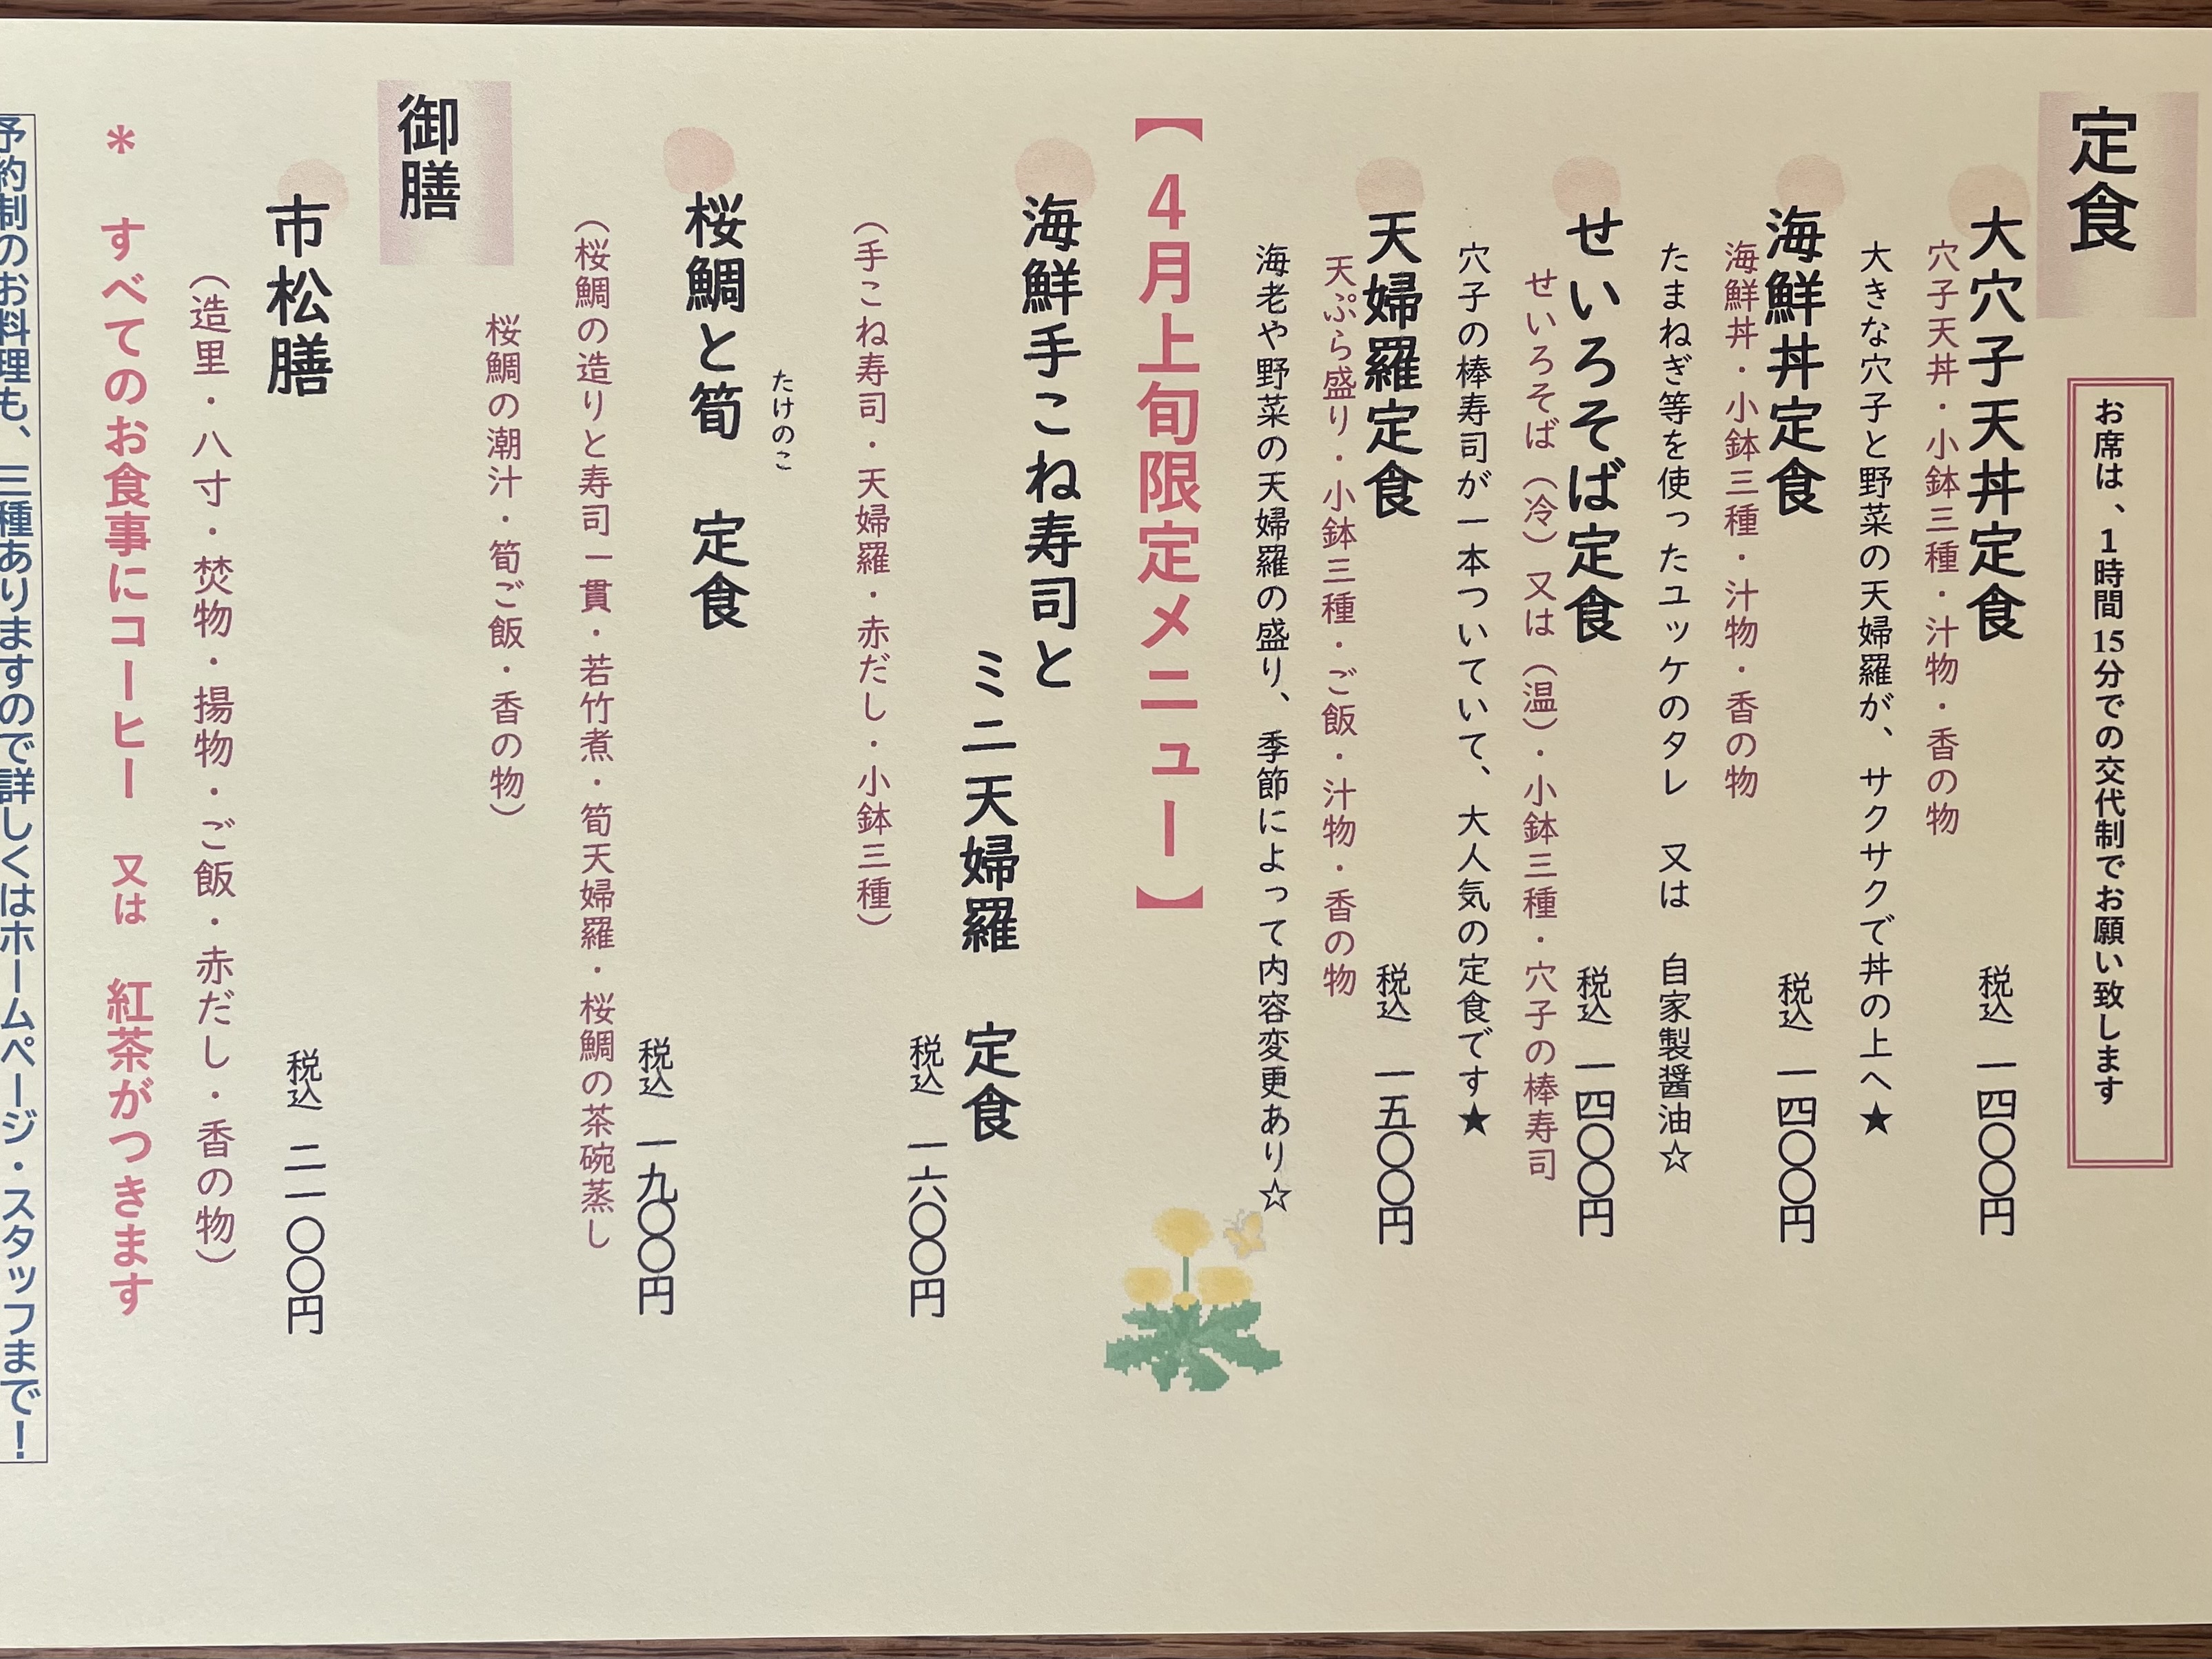 定食
お席は、1時間15分での交代制でお願い致します
大穴子天丼定食
税込 一四〇〇円
穴子天丼・小鉢三種・汁物・香の物
大きな穴子と野菜の天婦羅が、サクサクで丼の上へ★
海鮮丼定食
税込 一四〇〇円
海鮮丼・小鉢三種・汁物・香の物
たまねぎ等を使ったユッケのタレ 又は 自家製醤油☆
せいろそば定食
税込 一四〇〇円
せいろそば（冷）又は（温）・小鉢三種・穴子の棒寿司
穴子の棒寿司が一本ついていて、大人気の定食です★
天婦羅定食
税込 一五〇〇円
天ぷら盛り・小鉢三種・ご飯・汁物・香の物
海老や野菜の天婦羅の盛り、季節によって内容変更あり☆
【4月上旬限定メニュー】
海鮮手こね寿司と
ミニ天婦羅 定食
税込 一六〇〇円
（手こね寿司・天婦羅・赤だし・小鉢三種）
たけのこ
桜鯛と筍 定食
税込 一九〇〇円
（桜鯛の造りと寿司一貫・若竹煮・筍天婦羅・桜鯛の茶碗蒸し
桜鯛の潮汁・筍ご飯・香の物）
御膳
市松膳
税込 二一〇〇円
（造里・八寸・焚物・揚物・ご飯・赤だし・香の物）
＊ すべてのお食事にコーヒー 又は 紅茶がつきます
予約制のお料理も、三種ありますので詳しくはホームページ・スタッフまで！